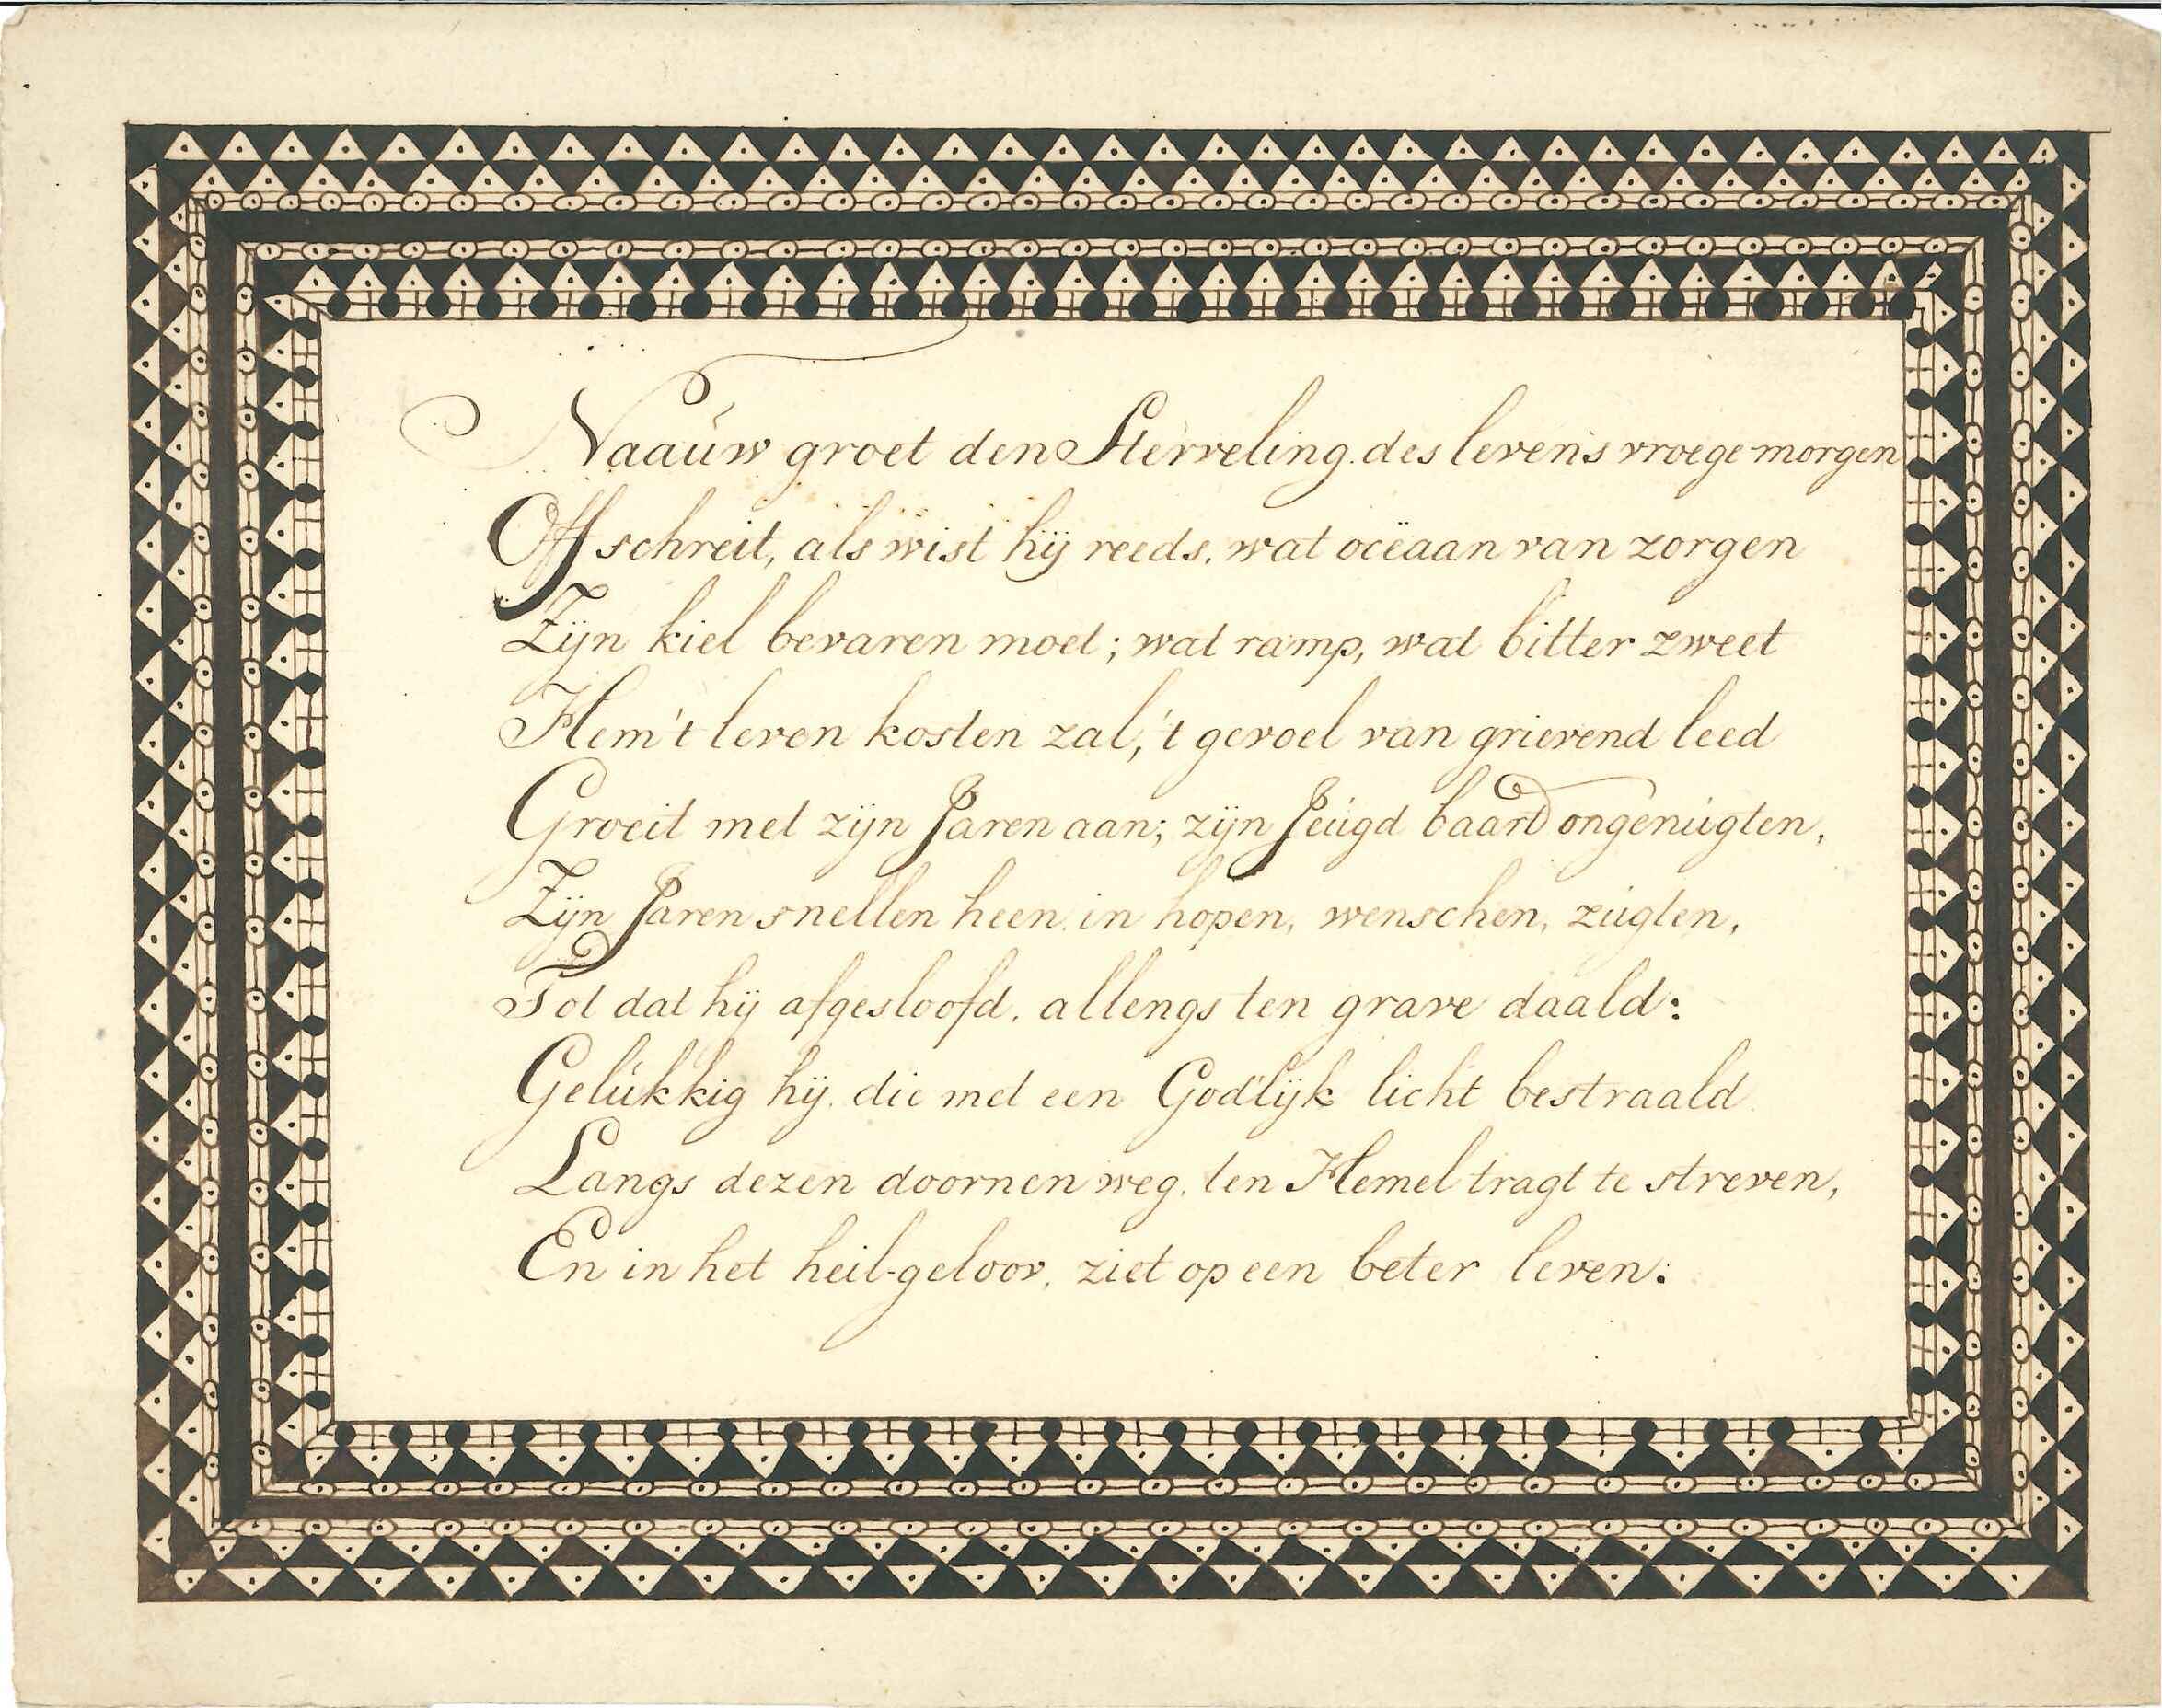 Naauw groet den Sterveling des levens vroege morgen
Off schreit, als wist hij reeds, wat oceäan van zorgen
Zijn kiel bevaren moet; wat ramp, wat bitter zweet
Hem 't leven kosten zal, 't gevoel van grievend leed
Groeit met zijn Jaren aan; zijn Jeugd baard ongenugten,
Zijn Jaren snellen heen in hopen, wenschen, zugten,
Tot dat hij afgesloofd, allengs ten grave daald:
Gelukkig hij, die met een Godlijk licht bestraald
Langs dezen doornen weg, ten Hemel tragt te streven,
En in het heil-geloov, ziet op een beter leven: